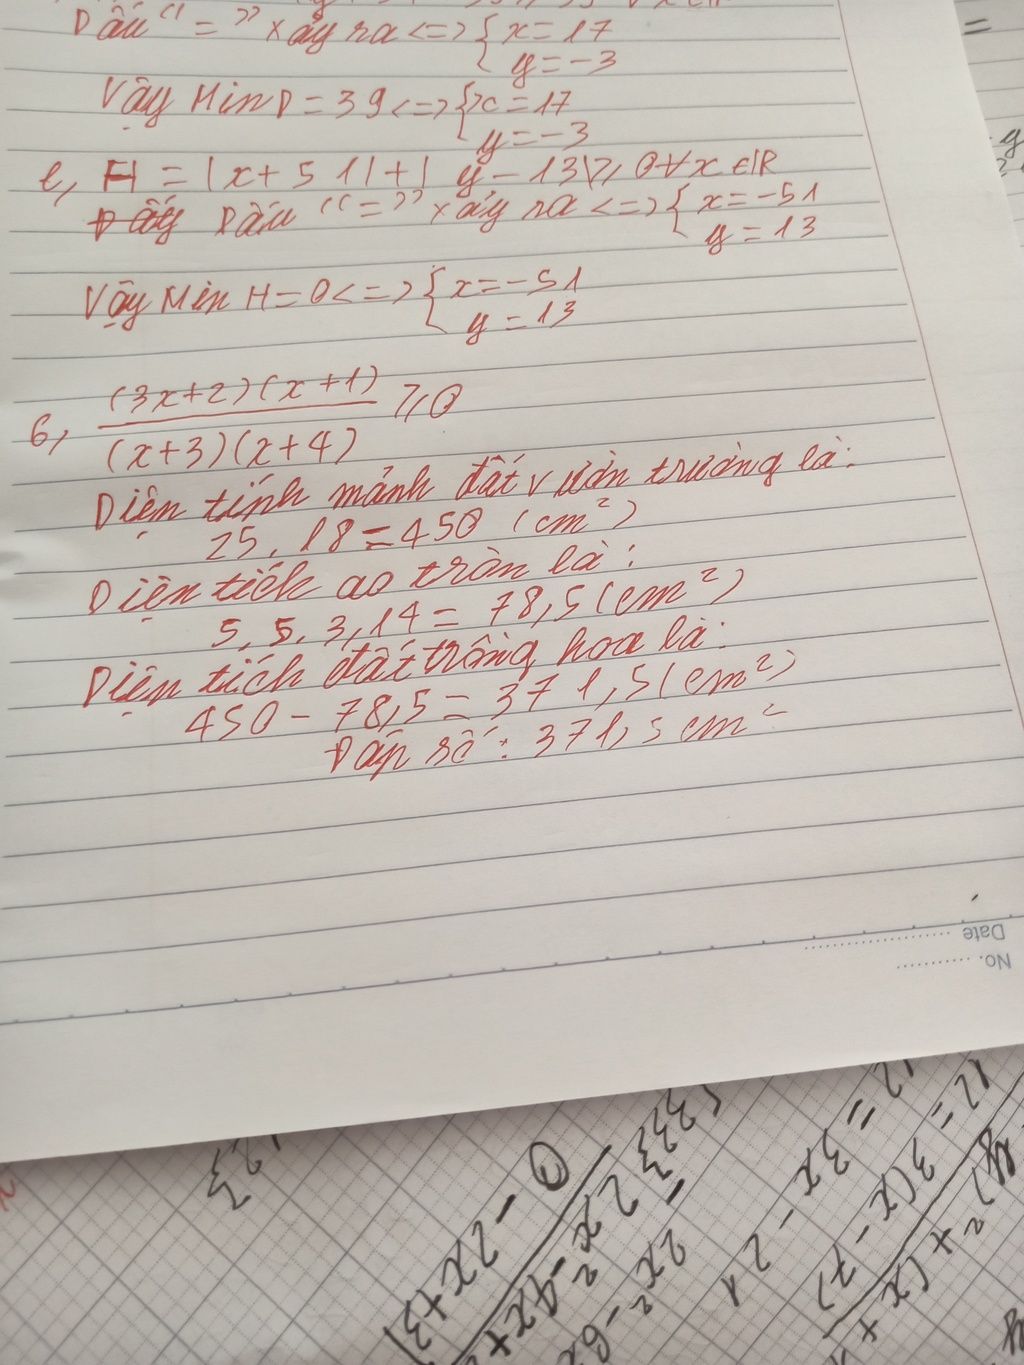 Dấu “=” xảy ra <=> { x=17
y=-3
Vậy Min D = 39 <=> { x=17
y=-3
e, H = |x+51|+| y-13|⩾0 ∀x∈R
Dấy Dấu “=” xảy ra <=> { x=-51
y=13
Vậy Min H=0<=> { x=-51
y=13
6, (3x+2)(x+1) ⩾0
(x+3)(x+4)
Diện tính mảnh đất vườn trường là:
25.18=450 (cm²)
Diện tích ao tròn là:
5.5.3,14=78,5(cm²)
Diện tích đất trồng hoa là:
450-78,5=371,5(cm²)
Đáp số: 371,5 cm²
Date
No.